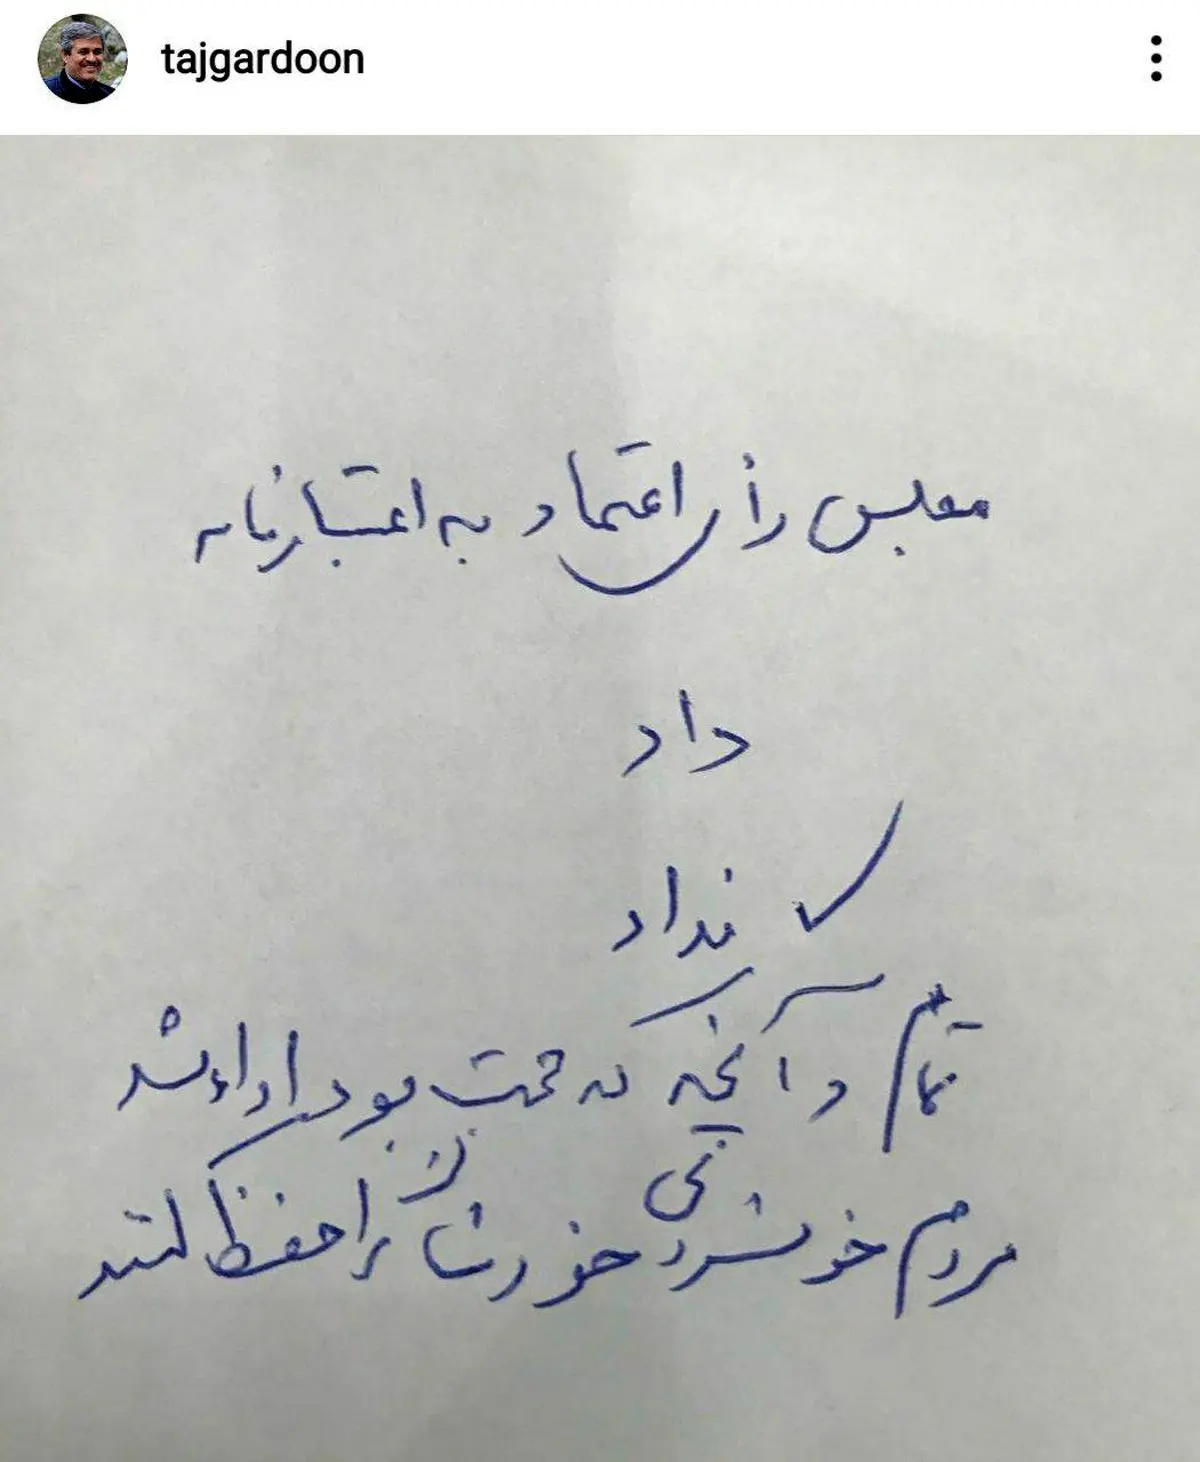 tajgardoon
مجلس رأی اعتماد به اعتبارنامه
داد
✓ نداد
تمام و آنچه که بود شد
مردم خونسردی خودشان را حفظ کنند